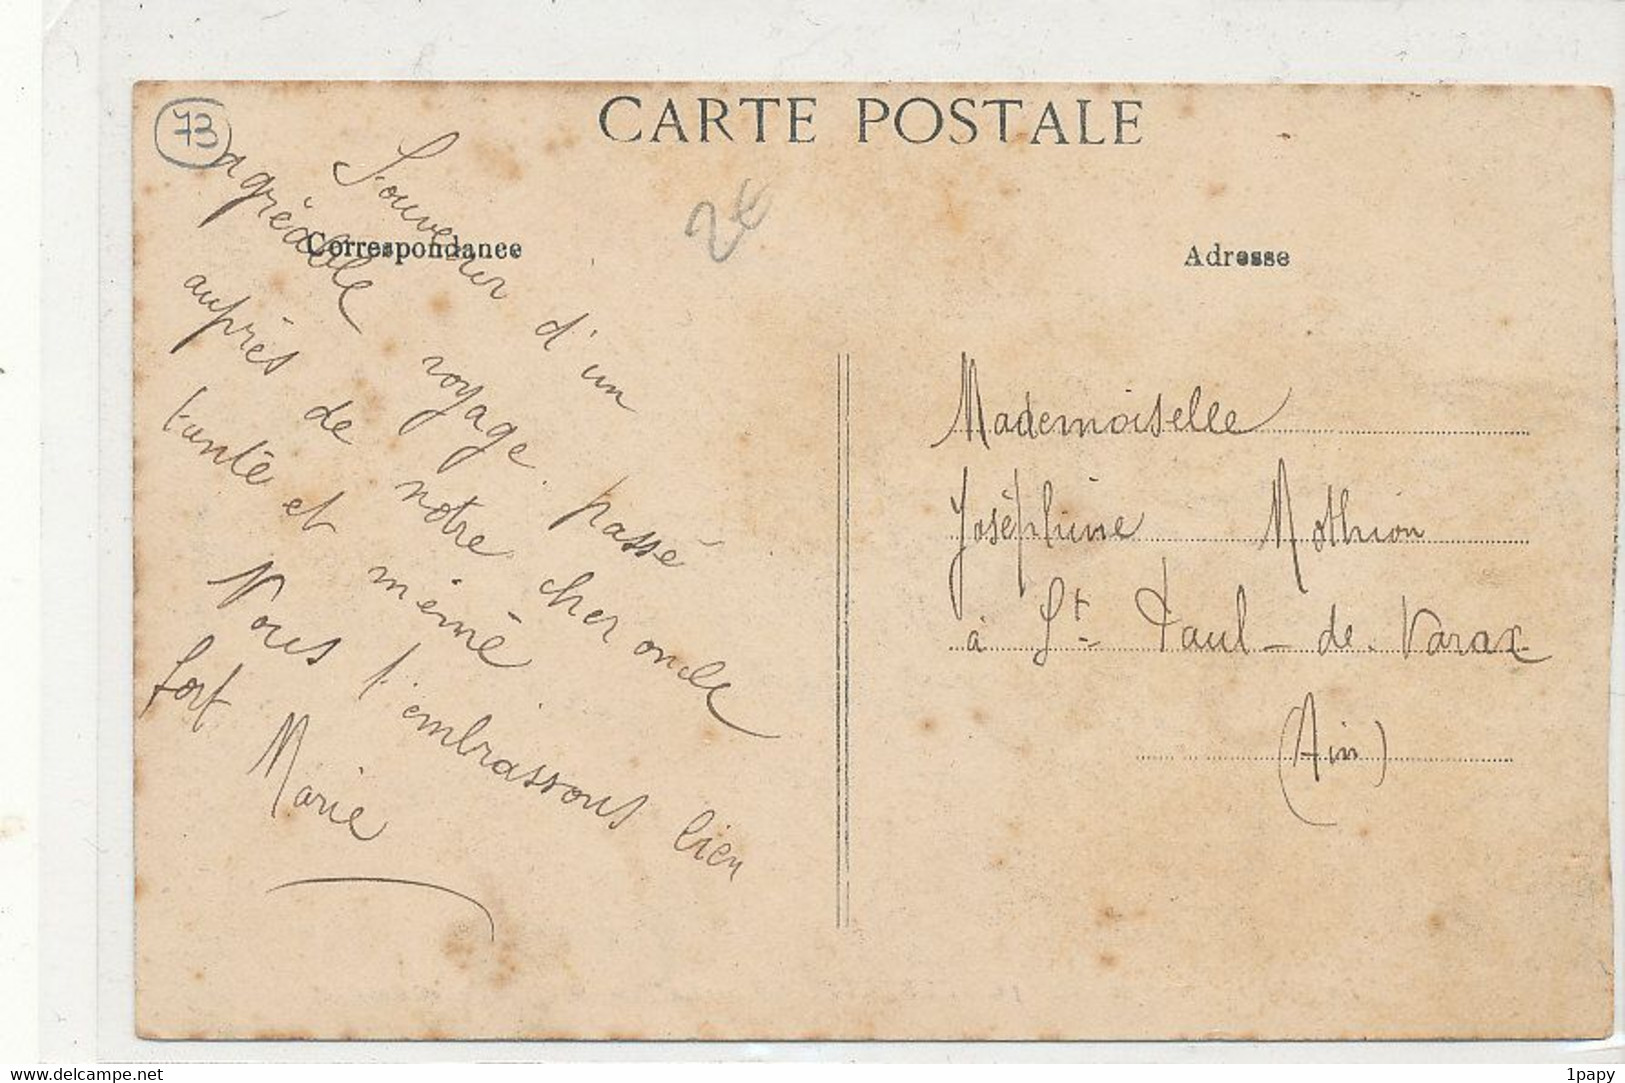 73
CARTE POSTALE
2€
Correspondance
Adresse
Souvenir d'un
agréable voyage passé
auprès de notre cher oncle
tante et mémé
Nous t'embrassons bien
fort
Marie
Mademoiselle
Joséphine Mathion
à St Paul-de-Varax
(Ain)
www.delcampe.net
1papy